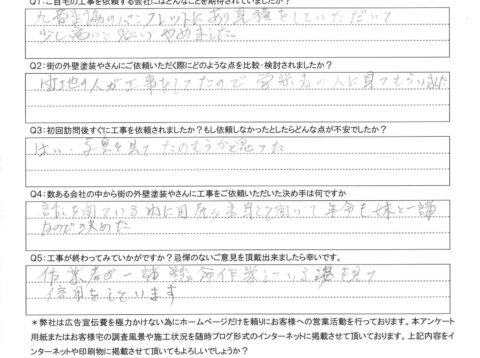 Q1：ご自宅の工事を依頼する会社にはどんなことを期待されていましたか？
のパンフレットにあり見積をしていただいて
少し高いと思い やめました
Q2：街の外壁塗装やさんにご依頼いただく際にどのような点を比較・検討されましたか？
団地の人が工事をしてたので 営業の人に見てもらいました
Q3：初回訪問後すぐに工事を依頼されましたか？もし依頼しなかったとしたらどんな点が不安でしたか？
はい、写真を見て たのもうかと思ってた
Q4：数ある会社の中から街の外壁塗装やさんに工事をご依頼いただいた決め手は何ですか
話を聞いている内に 聞いて 年令も妹と一諸
なので決めた
Q5：工事が終わってみていかがですか？忌憚のないご意見を頂戴出来ましたら幸いです。
作業者が一 作業している姿を見て
信用をしています
＊弊社は広告宣伝費を極力かけない為にホームページだけを頼りにお客様への営業活動を行っております。本アンケート
用紙またはお客様宅の調査風景や施工状況を随時ブログ形式のインターネットに掲載させて頂いております。上記内容をイ
ンターネットや印刷物に掲載させて頂いてもよろしいでしょうか？